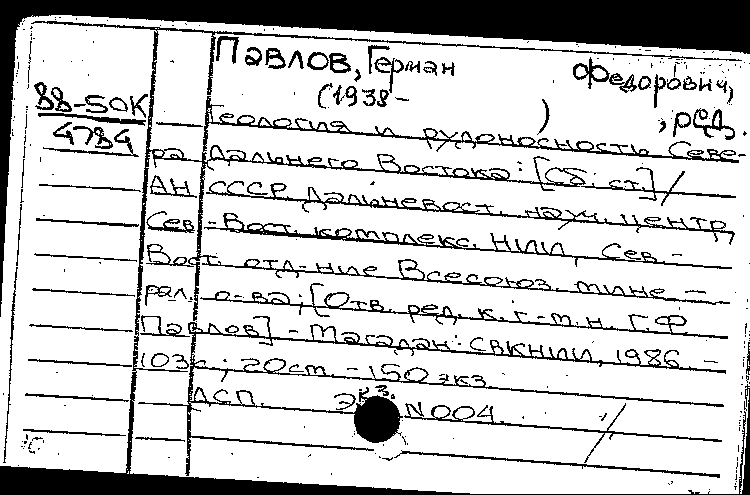 Павлов, Герман Федорович,
(1938- ), ред.
88-50К
4784
Геология и рудоносность Севе-
ра Дальнего Востока: [Сб. ст.] /
АН СССР, Дальневост. науч. центр,
Сев.-Вост. комплекс. НИИ, Сев.-
Вост. отд-ние Всесоюз. мине-
рал. о-ва; [Отв. ред. к. г.-м. н. Г.Ф
Павлов] - Магадан: СВКНИИ, 1986. -
103 с.; 20 см. - 150 экз.
ДСП. Экз. N 004.